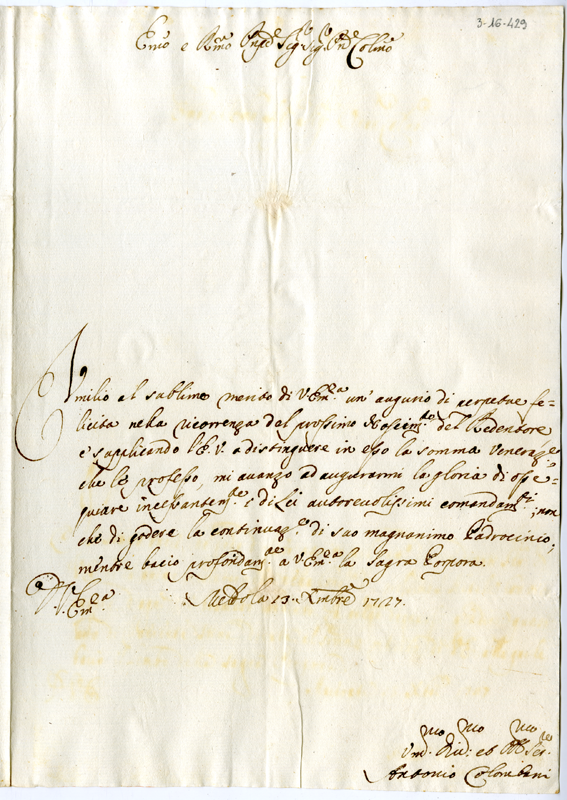 3-16-429
Emo e Rmo Sigr Sigr Pne Colmo
Umilio al sublime merito di V. Emza un' augurio di perpetue fe-
licita nella ricorrenza del prossimo Nascimto del Redentore
e supplicando l'E. V. a distinguere in esso la somma Venerazne
che le professo, mi avanzo ad augurarmi la gloria di osse-
quiare incessantemte i di Lei autorevolissimi comandamti; non
che di godere la continuazne di suo magnanimo Padrocinio,
mentre bacio profondamte a V. Emza la Sagra Porpora.
V. Emza
Meldola 13. Xmbre 1727.
Umo Divmo ed Obmo Serre
Antonio Colombani